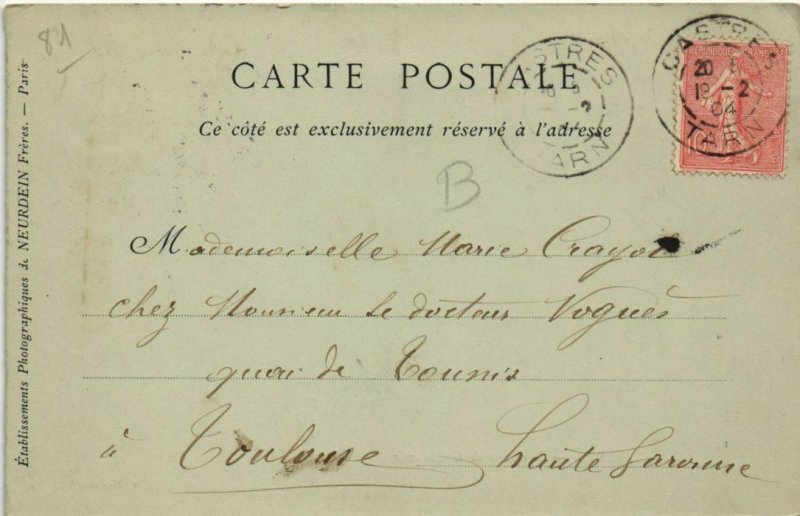 81
CARTE POSTALE
Ce côté est exclusivement réservé à l'adresse
CASTRES
20
12 -2
04
TARN
RÉPUBLIQUE FRANÇAISE
B
Mademoiselle Marie
chez Monsieur le docteur Voguès
quai de Tounis
à Toulouse haute Garonne
Établissements Photographiques de NEURDEIN Frères. — Paris